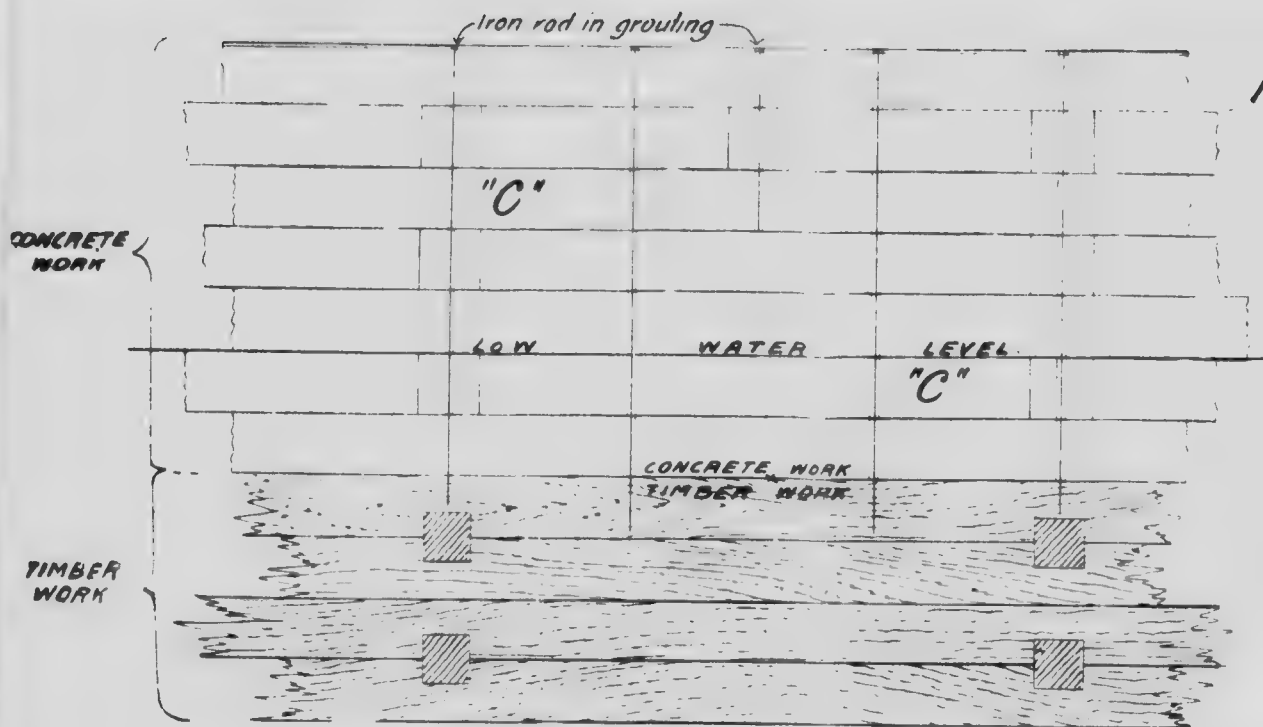 Iron rod in grouting
"C"
CONCRETE
WORK
LOW WATER LEVEL
"C"
CONCRETE WORK
TIMBER WORK
TIMBER
WORK